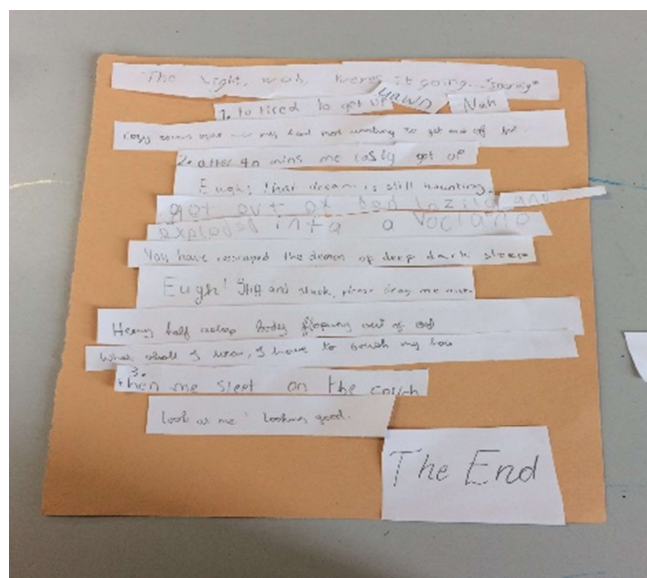 The light, woah, there's it going. *snoring*
1. to tired to get up yawn Nah
Cosy covers over my head not wanting to get me off
2. after 40 mins me lasly get up
Eugh! that dream is still haunting.
got out of bed lazily and
exploded into a Voclano
You have escaped the demon of deep dark sleep
Eugh! Stiff and stuck, please drag me
Heavy half asleep body flopping out of bed
What shall I wear, I have to brush my
3.
then me sleet on the couch
look at me! looking good.
The End